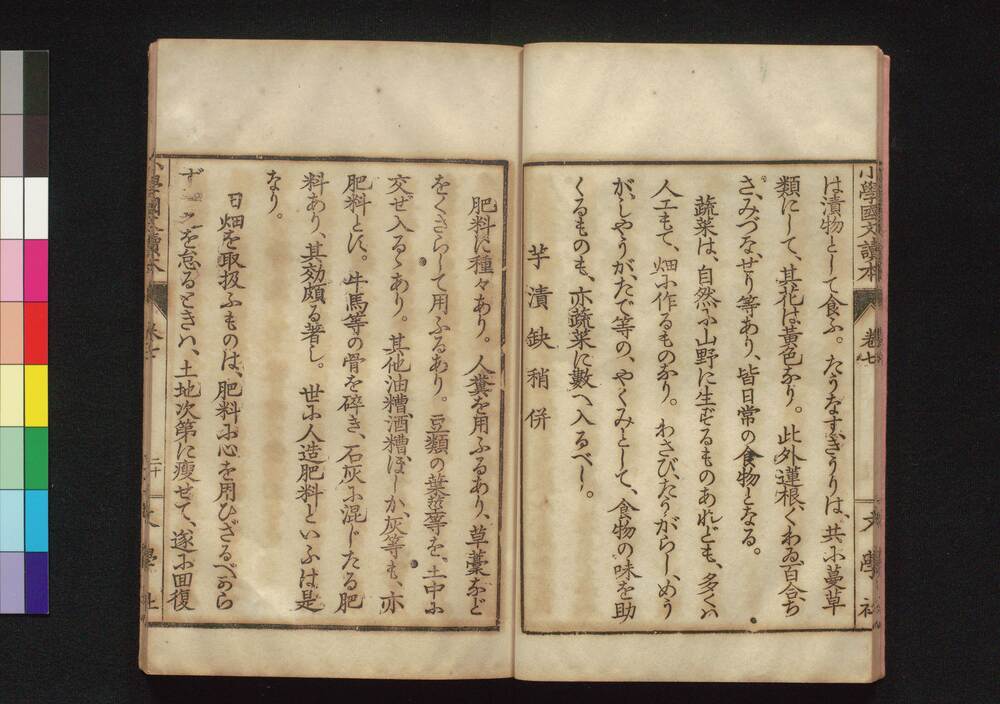 小學國文讀本
卷七
文學社
は漬物として食ふ。たうなすきうりは、共に蔓草
類にして、其花は黃色なり。此外蓮根、くわゐ百合、ち
さ、みづな、せり等あり、皆日常の食物となる。
蔬菜は、自然に山野に生ずるものあれども、多くハ
人工もて、畑に作るものなり。わさび、たうがらし、めう
が、しやうが、たで等の、やくみとして、食物の味を助
くるものも、亦蔬菜に數へ入るべし。
芋 漬 缺 稍 併
肥料に種々あり。人糞を用ふるあり、草藁など
をくさらして用ふるあり。豆類の葉莖等を、土中に
交ぜ入るゝあり。其他油糟、酒糟、ほしか、灰等も、亦
肥料とす。牛馬等の骨を碎き、石灰に混じたる肥
料あり、其効頗る著し。世に人造肥料といふは是
なり。
田畑を取扱ふものは、肥料に心を用ひざるべから
ず を怠るときハ、土地次第に瘦せて、遂に回復
小學國文讀本
卷七
二十
文學社